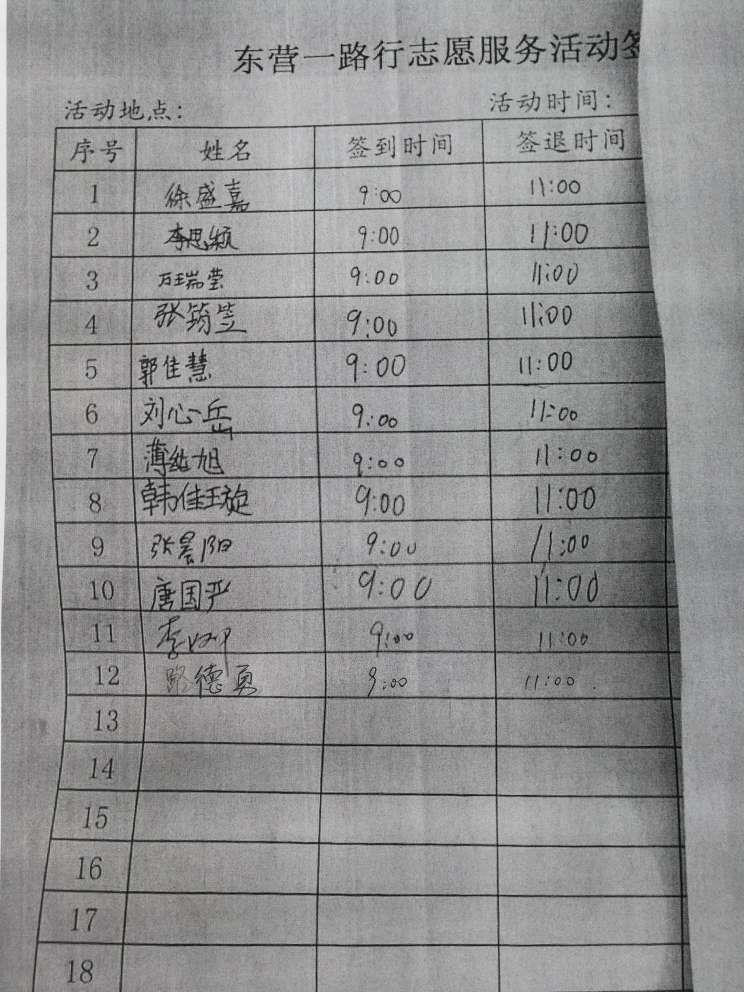 东营一路行志愿服务活动签
活动地点: 活动时间:
序号 姓名 签到时间 签退时间
1 徐盛嘉 9:00 11:00
2 李思颖 9:00 11:00
3 万瑞莹 9:00 11:00
4 张筠笠 9:00 11:00
5 郭佳慧 9:00 11:00
6 刘心岳 9:00 11:00
7 薄纮旭 9:00 11:00
8 韩佳璇 9:00 11:00
9 张晨阳 9:00 11:00
10 唐国严 9:00 11:00
11 李 9:00 11:00
12 路德勇 9:00 11:00
13
14
15
16
17
18